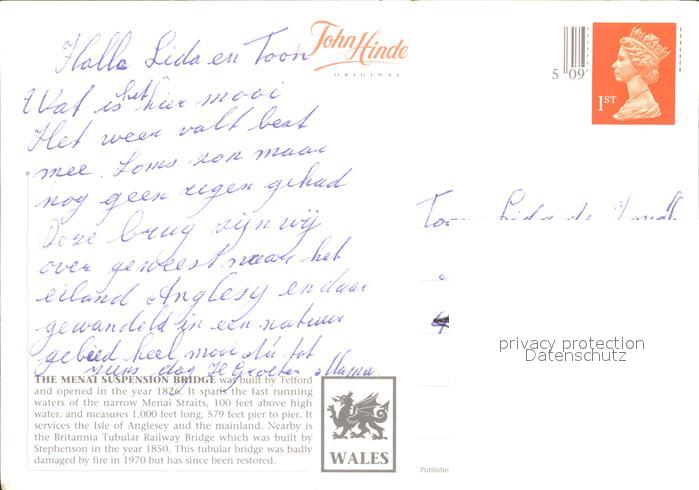 Hallo Lida en Toon
Wat is het hier mooi
Het weer valt best
mee. Soms zon maar
nog geen regen gehad
Deze brug zijn wij
over geweest naar het
eiland Anglesy en daar
gewandeld in een natuur
gebied heel mooi. Nu tot
dag Groeten Mama.
John Hinde
ORIGINAL
5 09
1ST
Toon Lida de
privacy protection
Datenschutz
THE MENAI SUSPENSION BRIDGE was built by Telford
and opened in the year 1826. It spans the fast running
waters of the narrow Menai Straits, 100 feet above high
water, and measures 1,000 feet long, 579 feet pier to pier. It
services the Isle of Anglesey and the mainland. Nearby is
the Britannia Tubular Railway Bridge which was built by
Stephenson in the year 1850. This tubular bridge was badly
damaged by fire in 1970 but has since been restored.
WALES
Publishe